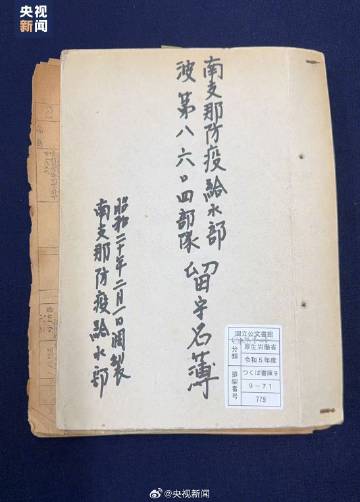 央视新闻
南支那防疫給水部
波第八六〇四部隊 留守名簿
昭和二十年二月一日調製
南支那防疫給水部
国立公文書館
分類
厚生労働省
令和5年度
つくば書庫9
排架番号
9-7.1
779
@央视新闻